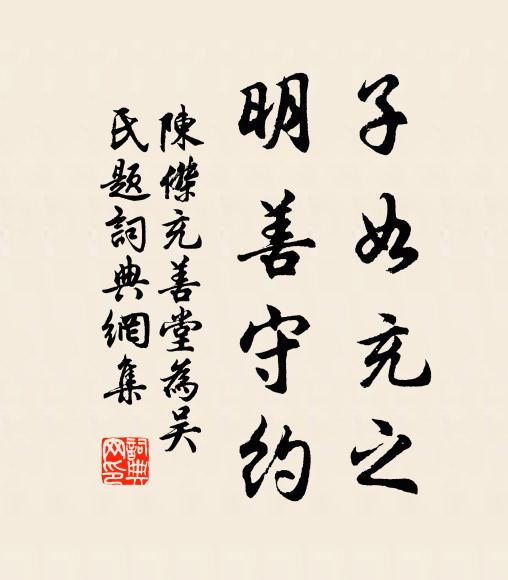 子如充之
明善守約
陳傑充善堂為吳
氏題詞典網集
詞典网印